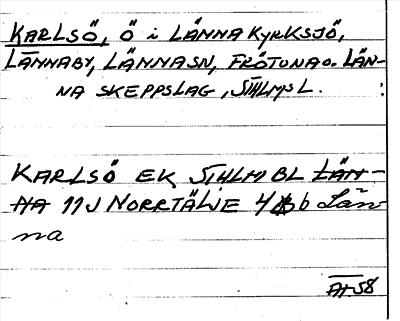 KARLSÖ, Ö i LÄNNA KYRKSJÖ,
LÄNNABY, LÄNNA SN, FRÖTUNA o. LÄN-
NA SKEPPSLAG, STHLMS L.
KARLSÖ EK STHLM BL LÄN-
NA 11J NORRTÄLJE 4 b Län
na
AI-58